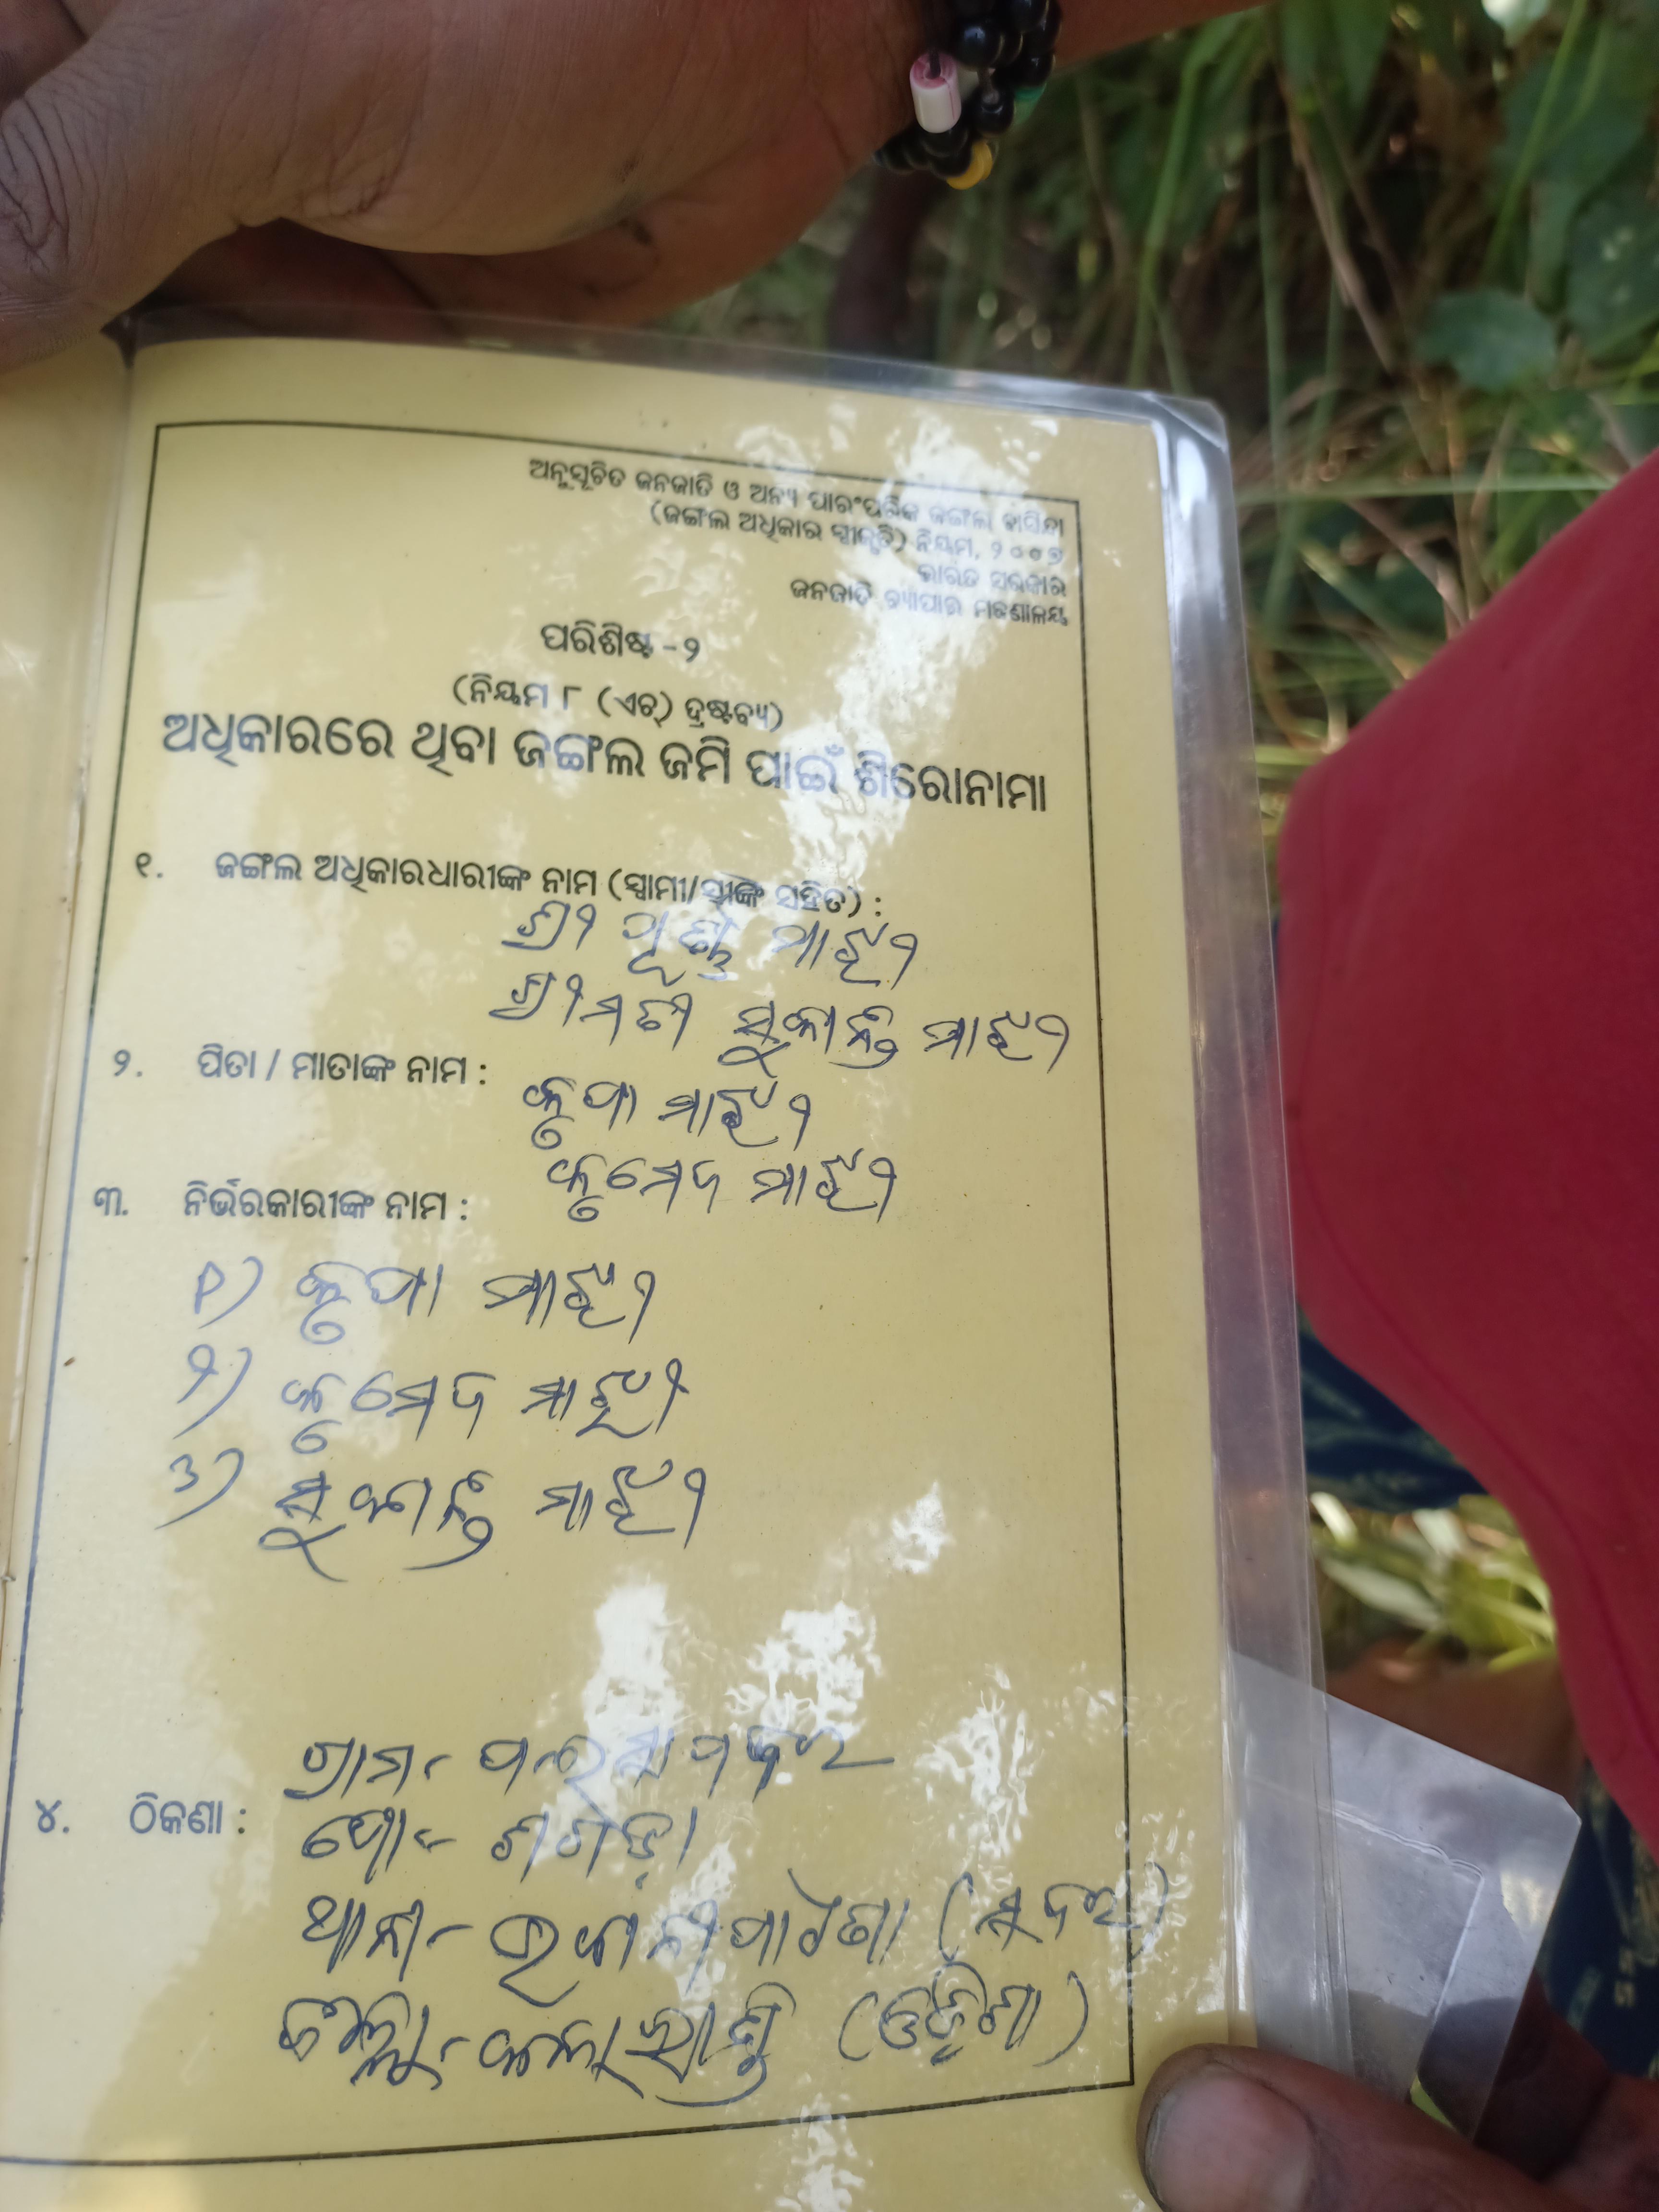 ଅନୁସୂଚିତ ଜନଜାତି ଓ ଅନ୍ୟ ପାରଂପରିକ ଜଙ୍ଗଲ ବାସିନ୍ଦା
(ଜଙ୍ଗଲ ଅଧିକାର ସ୍ୱୀକୃତି) ନିୟମ, ୨୦୦୭
ଭାରତ ସରକାର
ଜନଜାତି ବ୍ୟାପାର ମନ୍ତ୍ରଣାଳୟ
ପରିଶିଷ୍ଟ - ୨
(ନିୟମ ୮ (ଏଚ୍) ଦ୍ରଷ୍ଟବ୍ୟ)
ଅଧିକାରରେ ଥିବା ଜଙ୍ଗଲ ଜମି ପାଇଁ ଶିରୋନାମା
୧. ଜଙ୍ଗଲ ଅଧିକାରଧାରୀଙ୍କ ନାମ (ସ୍ୱାମୀ/ସ୍ତ୍ରୀଙ୍କ ସହିତ) :
ଶ୍ରୀ ପୂର୍ଣ୍ଣ ମାଝୀ
ଶ୍ରୀମତୀ ସୁକାନ୍ତି ମାଝୀ
୨. ପିତା / ମାତାଙ୍କ ନାମ :
କୃପା ମାଝୀ
ମାଝୀ
୩. ନିର୍ଭରକାରୀଙ୍କ ନାମ :
୧) କୃପା ମାଝୀ
୨) ମାଝୀ
୩) ସୁକାନ୍ତି ମାଝୀ
ଗ୍ରାମ-
୪. ଠିକଣା :
ପୋ-
ଥାନା- ଭବାନୀପାଟଣା (ସଦର)
ଜିଲ୍ଲା- କଳାହାଣ୍ଡି (ଓଡ଼ିଶା)